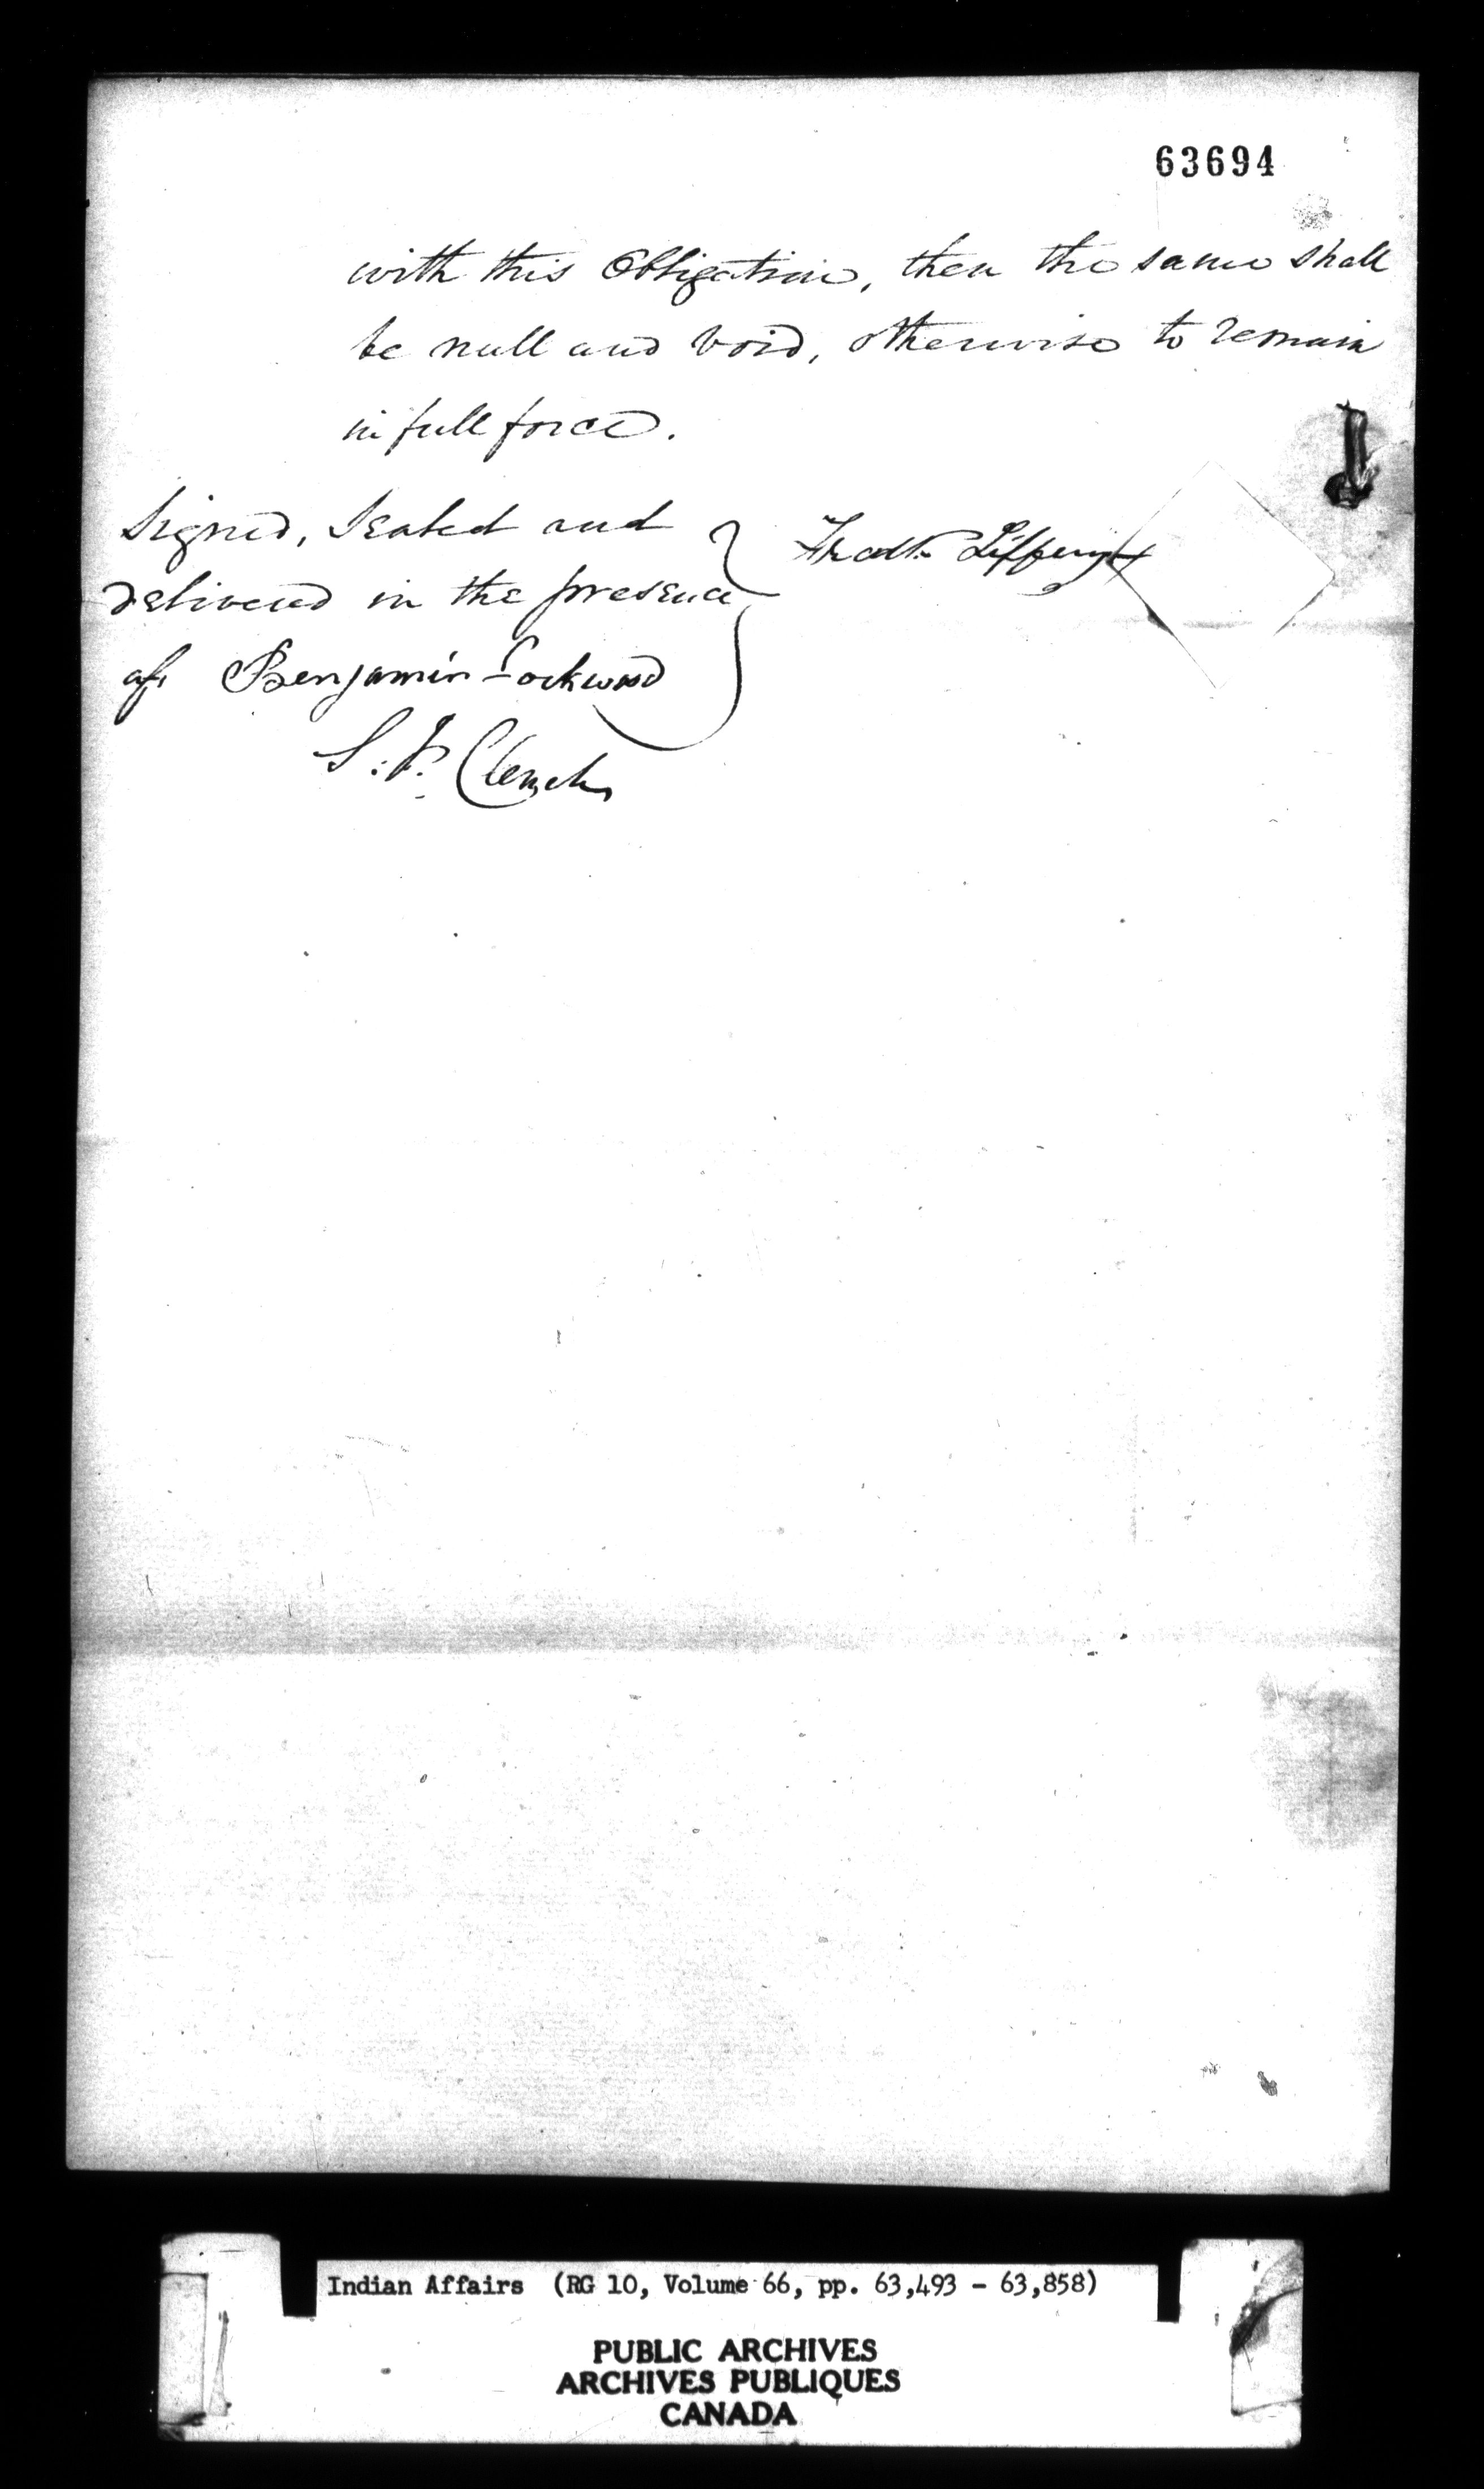 63694
with this Obligation, then the same shall
be null and void, otherwise to remain
in full force.
Signed, Sealed and
delivered in the presence
of Benjamin Lockwood
Clench
Indian Affairs (RG 10, Volume 66, pp. 63,493 - 63,858)
PUBLIC ARCHIVES
ARCHIVES PUBLIQUES
CANADA